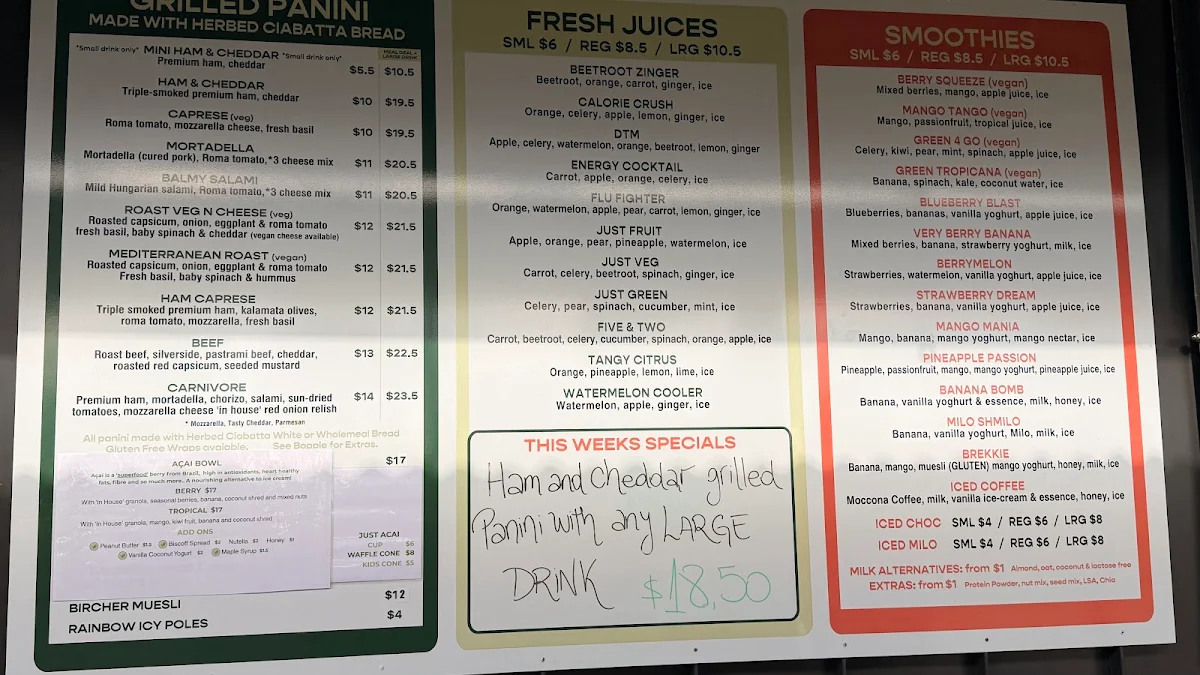 GRILLED PANINI
MADE WITH HERBED CIABATTA BREAD
MEAL DEAL +
LARGE DRINK
*Small drink only* MINI HAM & CHEDDAR *Small drink only*
Premium ham, cheddar
$5.5 $10.5
HAM & CHEDDAR
Triple-smoked premium ham, cheddar
$10 $19.5
CAPRESE (veg)
Roma tomato, mozzarella cheese, fresh basil
$10 $19.5
MORTADELLA
Mortadella (cured pork), Roma tomato,*3 cheese mix
$11 $20.5
BALMY SALAMI
Mild Hungarian salami, Roma tomato,*3 cheese mix
$11 $20.5
ROAST VEG N CHEESE (veg)
Roasted capsicum, onion, eggplant & roma tomato
fresh basil, baby spinach & cheddar (vegan cheese available)
$12 $21.5
MEDITERRANEAN ROAST (vegan)
Roasted capsicum, onion, eggplant & roma tomato
Fresh basil, baby spinach & hummus
$12 $21.5
HAM CAPRESE
Triple smoked premium ham, kalamata olives,
roma tomato, mozzarella, fresh basil
$12 $21.5
BEEF
Roast beef, silverside, pastrami beef, cheddar,
roasted red capsicum, seeded mustard
$13 $22.5
CARNIVORE
Premium ham, mortadella, chorizo, salami, sun-dried
tomatoes, mozzarella cheese 'in house' red onion relish
$14 $23.5
* Mozzarella, Tasty Cheddar, Parmesan
All panini made with Herbed Ciabatta White or Wholemeal Bread
Gluten Free Wraps avaiable. See Bopple for Extras.
$17
AÇAI BOWL
Açai is a 'superfood' berry from Brazil, high in antioxidants, heart healthy
fats, fibre and so much more. A nourishing alternative to ice cream!
BERRY $17
With 'In House' granola, seasonal berries, banana, coconut shred and mixed nuts
TROPICAL $17
With 'In House' granola, mango, kiwi fruit, banana and coconut shred
ADD ONS
Peanut Butter $1.5 Biscoff Spread $2 Nutella $2 Honey $1
Vanilla Coconut Yogurt $2 Maple Syrup $1.5
JUST ACAI
CUP $6
WAFFLE CONE $8
KIDS CONE $5
BIRCHER MUESLI $12
RAINBOW ICY POLES $4
FRESH JUICES
SML $6 / REG $8.5 / LRG $10.5
BEETROOT ZINGER
Beetroot, orange, carrot, ginger, ice
CALORIE CRUSH
Orange, celery, apple, lemon, ginger, ice
DTM
Apple, celery, watermelon, orange, beetroot, lemon, ginger
ENERGY COCKTAIL
Carrot, apple, orange, celery, ice
FLU FIGHTER
Orange, watermelon, apple, pear, carrot, lemon, ginger, ice
JUST FRUIT
Apple, orange, pear, pineapple, watermelon, ice
JUST VEG
Carrot, celery, beetroot, spinach, ginger, ice
JUST GREEN
Celery, pear, spinach, cucumber, mint, ice
FIVE & TWO
Carrot, beetroot, celery, cucumber, spinach, orange, apple, ice
TANGY CITRUS
Orange, pineapple, lemon, lime, ice
WATERMELON COOLER
Watermelon, apple, ginger, ice
THIS WEEKS SPECIALS
Ham and Cheddar grilled
Panini with any LARGE
DRINK $18,50
SMOOTHIES
SML $6 / REG $8.5 / LRG $10.5
BERRY SQUEEZE (vegan)
Mixed berries, mango, apple juice, ice
MANGO TANGO (vegan)
Mango, passionfruit, tropical juice, ice
GREEN 4 GO (vegan)
Celery, kiwi, pear, mint, spinach, apple juice, ice
GREEN TROPICANA (vegan)
Banana, spinach, kale, coconut water, ice
BLUEBERRY BLAST
Blueberries, bananas, vanilla yoghurt, apple juice, ice
VERY BERRY BANANA
Mixed berries, banana, strawberry yoghurt, milk, ice
BERRYMELON
Strawberries, watermelon, vanilla yoghurt, apple juice, ice
STRAWBERRY DREAM
Strawberries, banana, vanilla yoghurt, apple juice, ice
MANGO MANIA
Mango, banana, mango yoghurt, mango nectar, ice
PINEAPPLE PASSION
Pineapple, passionfruit, mango, mango yoghurt, pineapple juice, ice
BANANA BOMB
Banana, vanilla yoghurt & essence, milk, honey, ice
MILO SHMILO
Banana, vanilla yoghurt, Milo, milk, ice
BREKKIE
Banana, mango, muesli (GLUTEN) mango yoghurt, honey, milk, ice
ICED COFFEE
Moccona Coffee, milk, vanilla ice-cream & essence, honey, ice
ICED CHOC SML $4 / REG $6 / LRG $8
ICED MILO SML $4 / REG $6 / LRG $8
MILK ALTERNATIVES: from $1 Almond, oat, coconut & lactose free
EXTRAS: from $1 Protein Powder, nut mix, seed mix, LSA, Chia